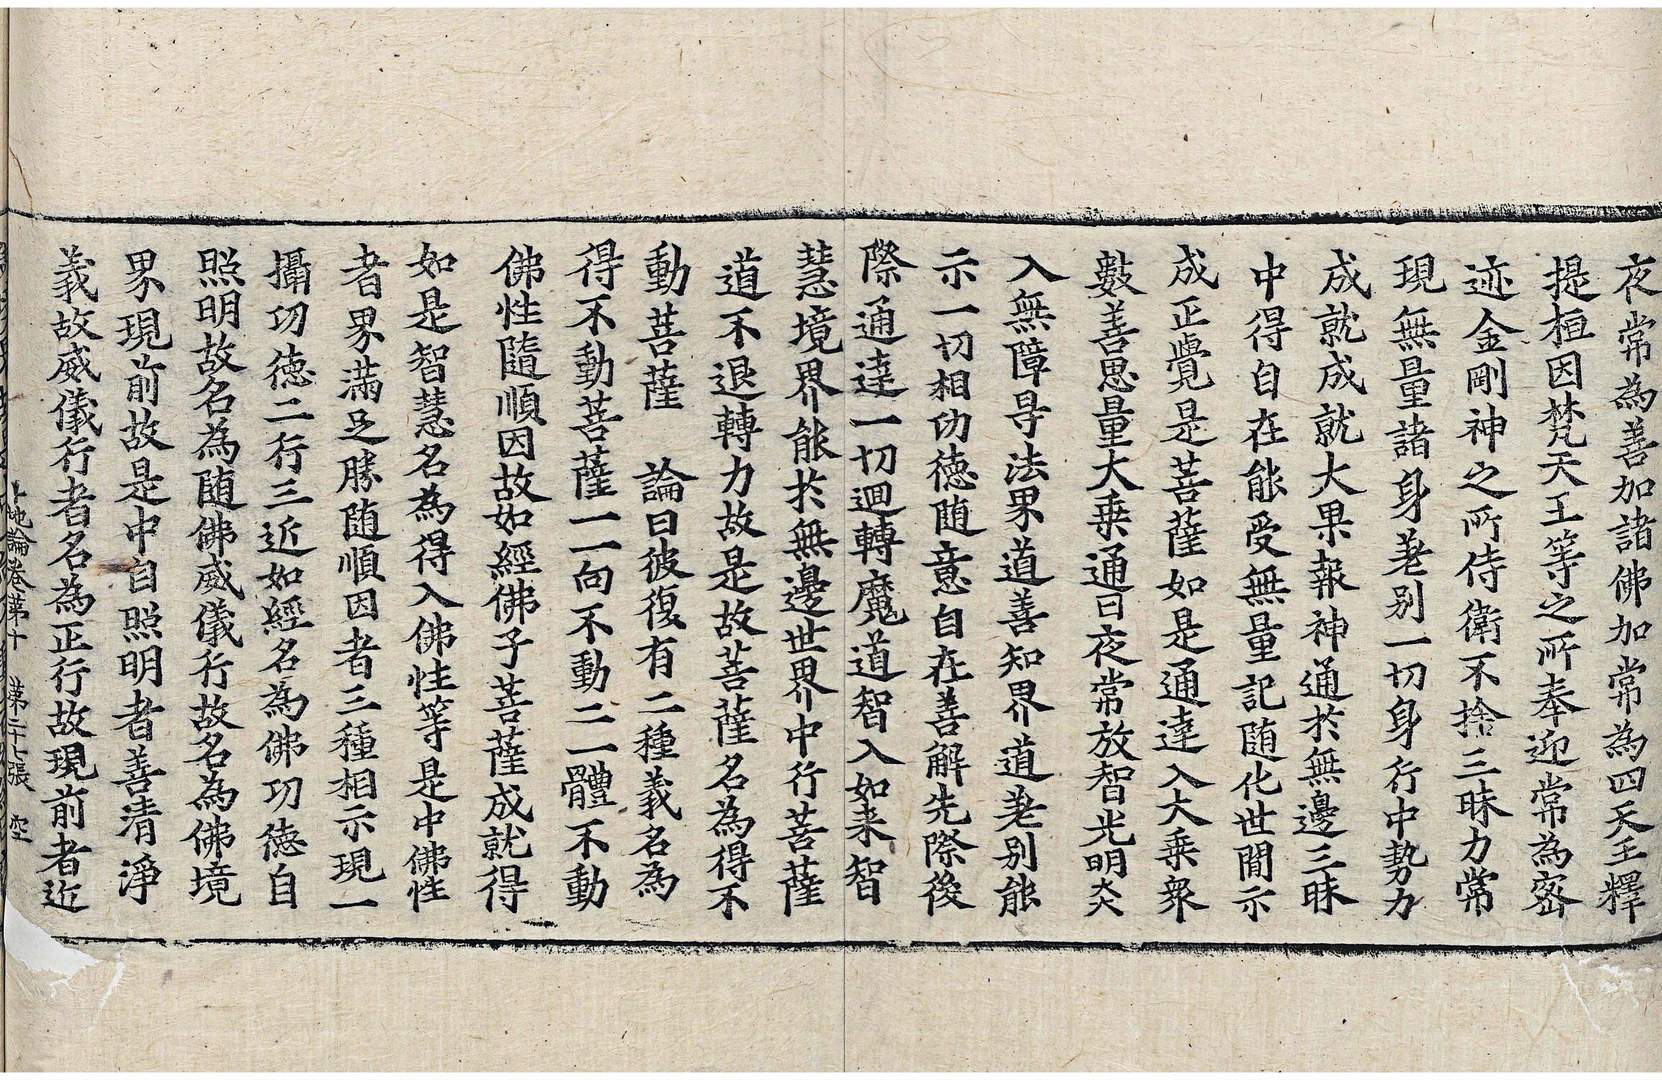 夜常為善加諸佛加常為四天王釋
提桓因梵天王等之所奉迎常為密
迹金剛神之所侍衛不捨三昧力常
現無量諸身差别一切身行中勢力
成就成就大果報神通於無邊三昧
中得自在能受無量記随化世間示
成正覺是菩薩如是通達入大乘衆
數善思量大乘通日夜常放智光明炎
入無障㝵法界道善知界道差别能
示一切相功德随意自在善解先際後
際通達一切迴轉魔道智入如来智
慧境界能於無邊世界中行菩薩
道不退轉力故是故菩薩名為得不
動菩薩 論曰彼復有二種義名為
得不動菩薩一一向不動二一體不動
佛性隨順因故如經佛子菩薩成就得
如是智慧名為得入佛性等是中佛性
者界滿足勝随順因者三種相示現一
攝功德二行三近如經名為佛功德自
照明故名為随佛威儀行故名為佛境
界現前故是中自照明者善清淨
義故威儀行者名為正行故現前者近
十地論卷第十 第二十七張 空